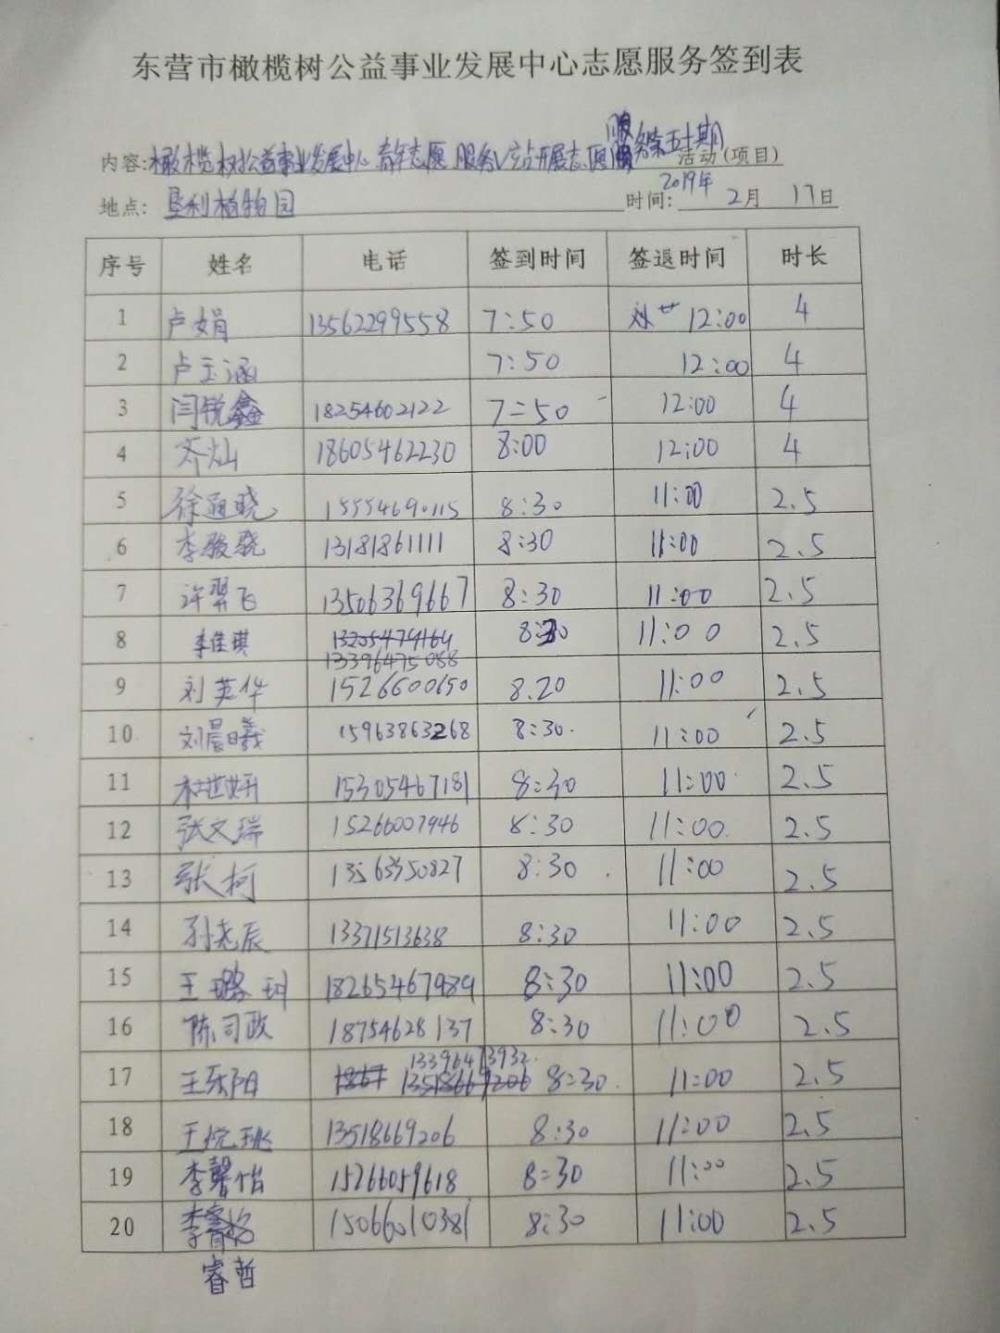 东营市橄榄树公益事业发展中心志愿服务签到表
内容:橄榄树公益事业发展中心青年志愿服务V站开展志愿服务第五十期活动(项目)
地点:垦利植物园 时间:2019年2月17日
序号 姓名 电话 签到时间 签退时间 时长
1 卢娟 13562299558 7:50 12:00 4
2 卢玉涵 7:50 12:00 4
3 闫锐鑫 18254602122 7:50 12:00 4
4 齐灿 18605462230 8:00 12:00 4
5 徐通晓 15554690115 8:30 11:00 2.5
6 李骏骁 13181861111 8:30 11:00 2.5
7 许羿飞 13506369667 8:30 11:00 2.5
8 李佳琪 13205474164 8:30 11:00 2.5
13396475088
9 刘英华 1526600650 8.20 11:00 2.5
10 刘晨曦 15963863268 8:30 11:00 2.5
11 15305467181 8:30 11:00 2.5
12 张文瑞 15266007946 8:30 11:00 2.5
13 张柯 13563350827 8:30 11:00 2.5
14 孙尧辰 13371513638 8:30 11:00 2.5
15 王璐珂 18265467989 8:30 11:00 2.5
16 陈司政 18754628137 8:30 11:00 2.5
13396473932
17 1867 13518669206 8:30 11:00 2.5
18 13518669206 8:30 11:00 2.5
19 李馨怡 15266059618 8:30 11:00 2.5
20 李睿哲 15066010381 8:30 11:00 2.5
睿哲